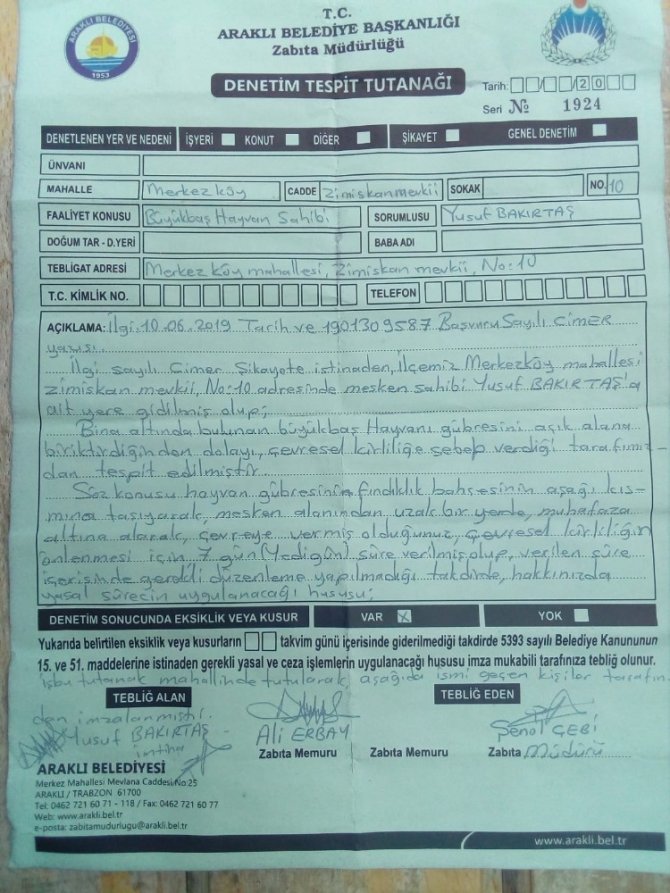 ARAKLI BELEDİYESİ
1953
T.C.
ARAKLI BELEDİYE BAŞKANLIĞI
Zabıta Müdürlüğü
DENETİM TESPİT TUTANAĞI
Tarih: 20
Seri № 1924
DENETLENEN YER VE NEDENİ İŞYERİ KONUT DİĞER ŞİKAYET GENEL DENETİM
ÜNVANI
MAHALLE Merkez köy CADDE Zimiskan mevkii SOKAK NO. 10
FAALİYET KONUSU Büyükbaş Hayvan Sahibi SORUMLUSU Yusuf BAKIRTAŞ
DOĞUM TAR - D.YERİ BABA ADI
TEBLİGAT ADRESİ Merkez köy mahallesi, Zimiskan mevkii, No:10
T.C. KİMLİK NO. TELEFON
AÇIKLAMA: İlgi 10.06.2019 Tarih ve 1901309587 Başvuru Sayılı CİMER
yazısı.
İlgi sayılı Cimer Şikayete istinaden, İlçemiz Merkezköy mahallesi
zimiskan mevkii, No:10 adresinde mesken sahibi Yusuf BAKIRTAŞ'a
ait yere gidilmiş olup;
Bina altında bulunan büyükbaş Hayvanı gübresini açık alana
biriktirdiğinden dolayı, çevresel kirliliğe sebep verdiği tarafımız-
dan tespit edilmiştir.
Söz konusu hayvan gübresinin fındıklık bahçesinin aşağı kıs-
mına taşıyarak, mesken alanından uzak bir yerde, muhafaza
altına alarak, çevreye vermiş olduğunuz, çevresel kirliliğin
önlenmesi için 7 gün (Yedi gün) süre verilmiş olup, verilen süre
içerisinde gerekli düzenleme yapılmadığı takdirde, hakkınızda
yasal sürecin uygulanacağı hususu;
DENETİM SONUCUNDA EKSİKLİK VEYA KUSUR VAR X YOK
Yukarıda belirtilen eksiklik veya kusurların takvim günü içerisinde giderilmediği takdirde 5393 sayılı Belediye Kanununun
15. ve 51. maddelerine istinaden gerekli yasal ve ceza işlemlerin uygulanacağı hususu imza mukabili tarafınıza tebliğ olunur.
İşbu tutanak mahallinde tutularak aşağıda ismi geçen kişiler tarafın-
TEBLİĞ ALAN TEBLİĞ EDEN
dan imzalanmıştır.
Yusuf BAKIRTAŞ Ali ERBAY Şenol ÇEBİ
Zabıta Memuru Zabıta Memuru Zabıta Müdürü
ARAKLI BELEDİYESİ
Merkez Mahallesi Mevlana Caddesi No:25
ARAKLI / TRABZON 61700
Tel: 0462 721 60 71 - 118 / Fax: 0462 721 60 77
Web: www.arakli.bel.tr
e-posta: zabitamudurlugu@arakli.bel.tr
www.arakli.bel.tr